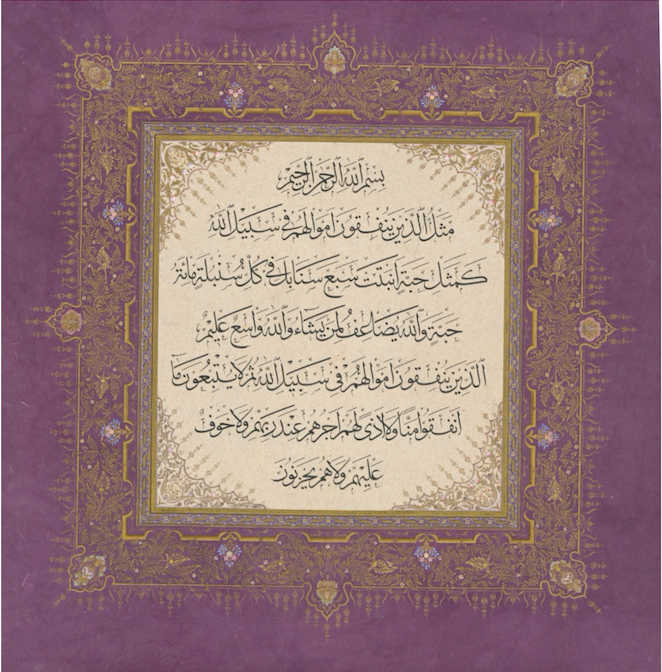 بسم الله الرحمن الرحيم
مثل الذين ينفقون اموالهم في سبيل الله
كمثل حبة انبتت سبع سنابل في كل سنبلة مائة
حبة والله يضاعف لمن يشاء والله واسع عليم
الذين ينفقون اموالهم في سبيل الله ثم لا يتبعون ما
انفقوا منا ولا اذى لهم اجرهم عند ربهم ولا خوف
عليهم ولا هم يحزنون